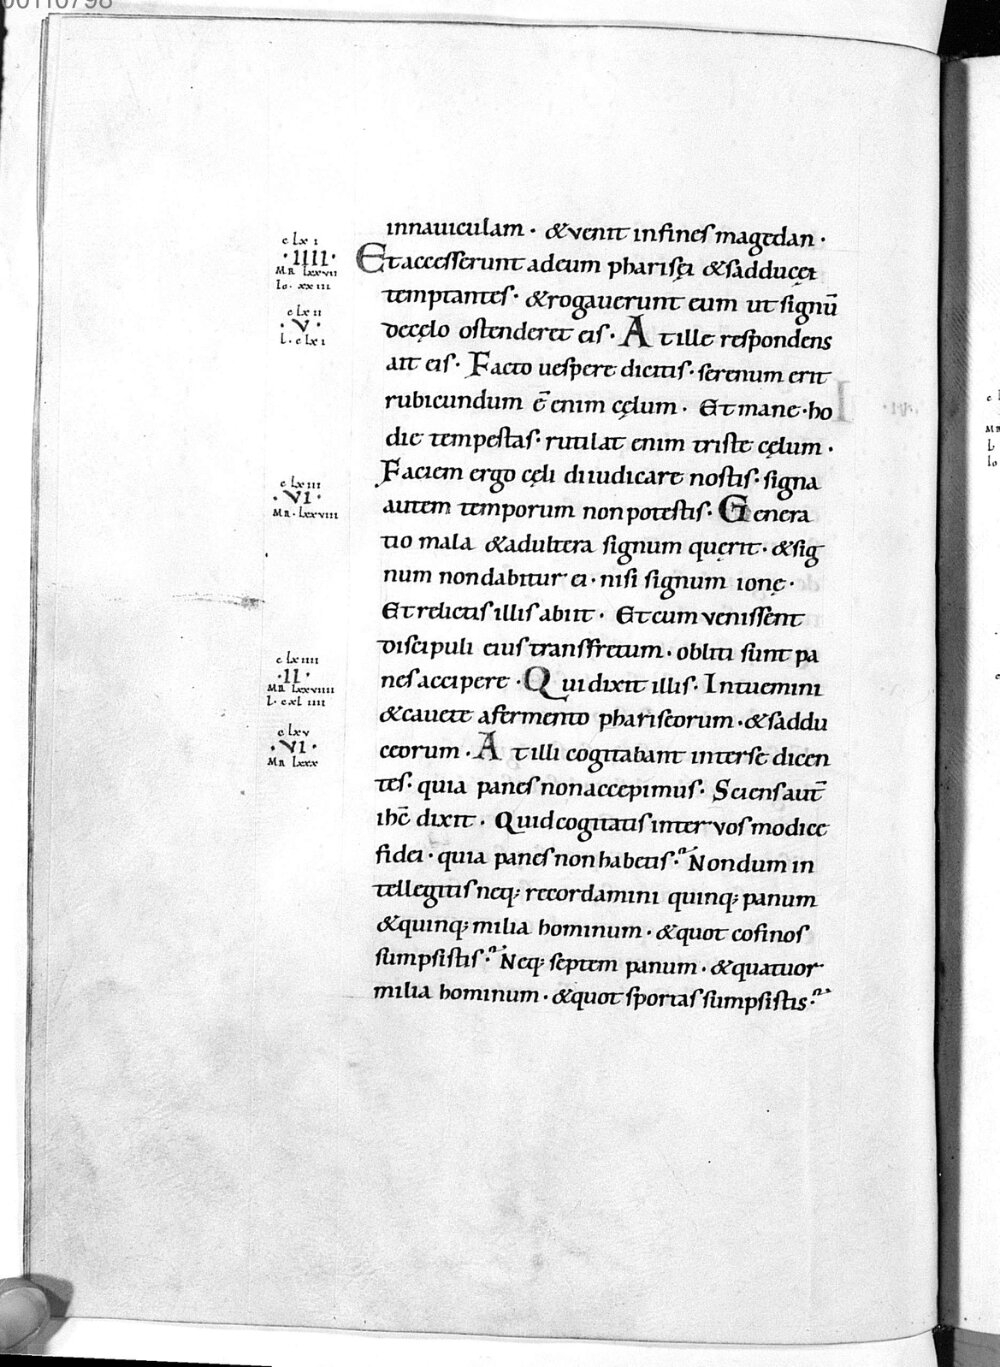 00110798
innauiculam · &venit infines magedan ·
c lx i
· IIII ·
MR lxxvii
Io · xxiii
Et accesserunt adeum pharisęi &sadducęi
temptantes · &rogauerunt eum ut signū
c lx ii
· V ·
L · c lx i
decęlo ostenderet eis · At ille respondens
ait eis · Facto uespere dicitis · serenum erit
rubicundum ē enim cęlum · Et mane · ho
die tempestas · rutilat enim triste cęlum ·
Faciem ergo cęli diiudicare nostis · signa
c lx iii
· VI ·
MR · lxxviii
autem temporum nonpotestis · Genera
tio mala &adultera signum quęrit · &sig
num nondabitur ei · nisi signum ionę ·
Et relictis illis abiit · Et cum venissent
discipuli eius transfretum · obliti sunt pa
c lx iiii
· II ·
MR lxxviiii
L · c xl iiii
nes accipere · Qui dixit illis · Intuemini
&cauete afermento phariseorum · &saddu
c lxv
· VI ·
MR lxxx
ceorum · At illi cogitabant interse dicen
tes · quia panes nonaccepimus · Sciens aut̄
ihc̄ dixit · Quid cogitatis inter vos modice
fidei · quia panes non habetis · Nondum in
tellegitis neq; recordamini quinq; panum
&quinq; milia hominum · &quot cofinos
sumpsistis · Neq; septem panum · &quatuor
milia hominum · &quot sportas sumpsistis ·